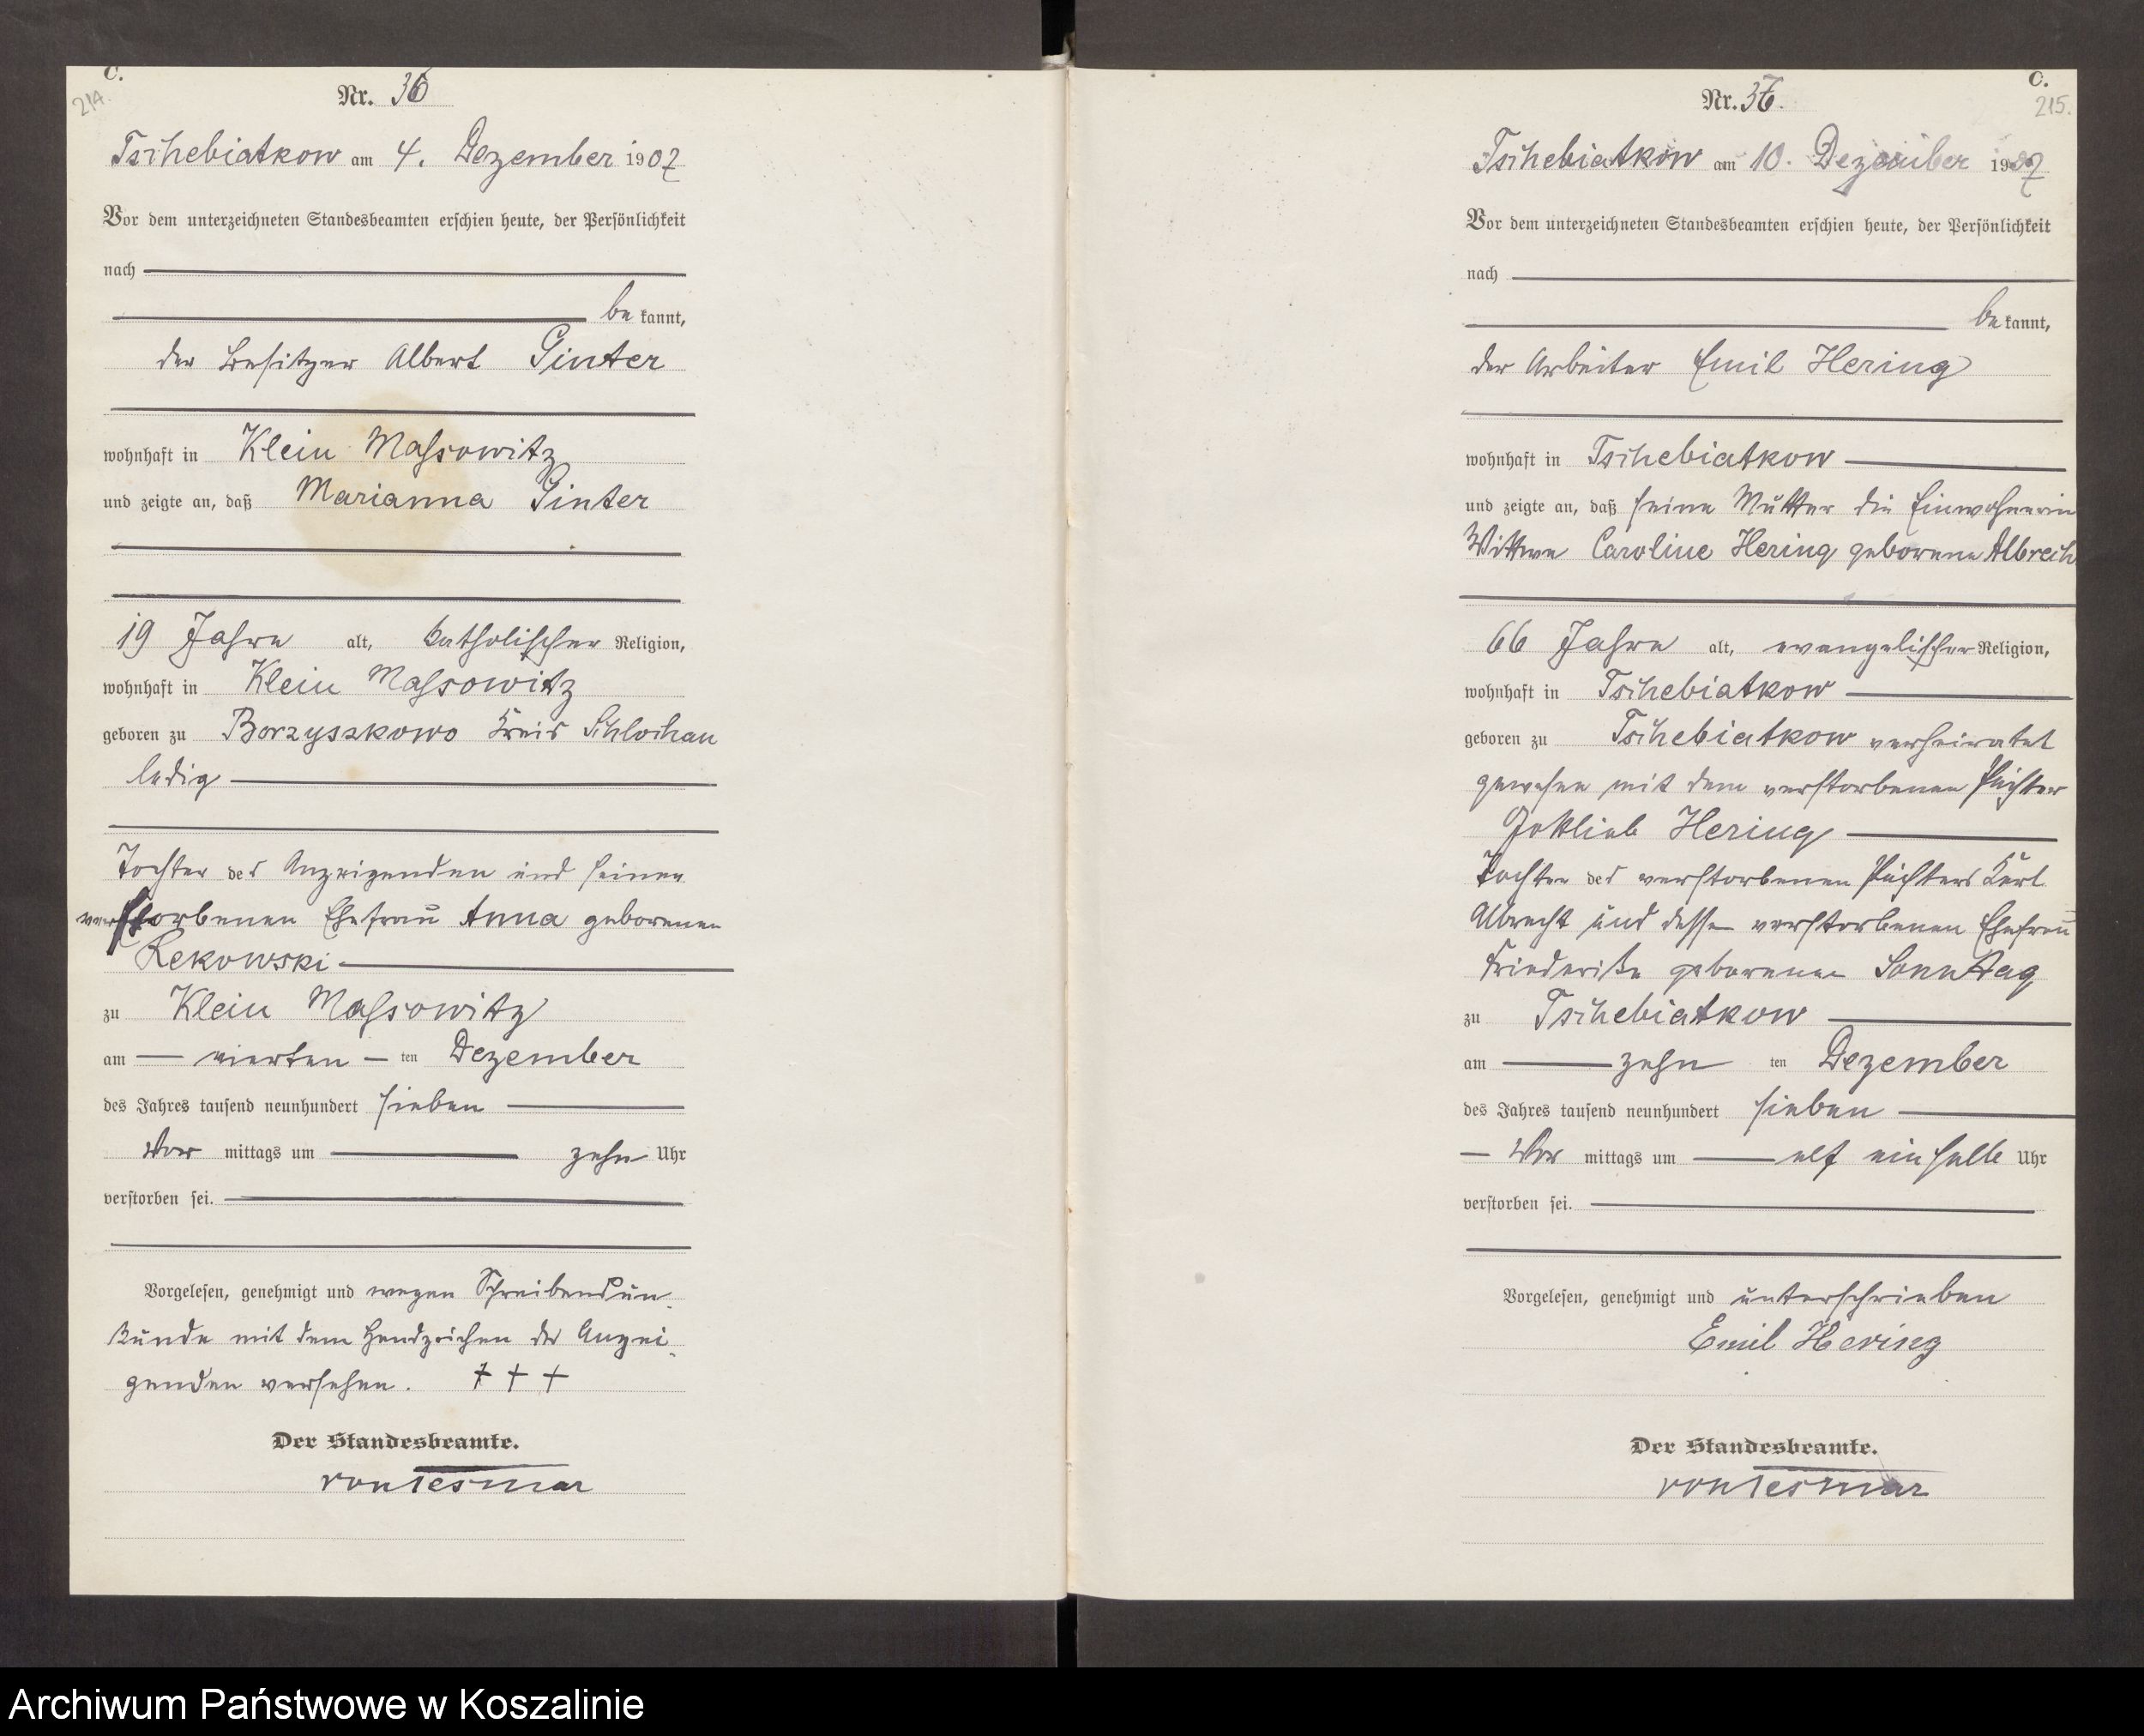 C.
214.
Nr. 36
Tschebiatkow am 4. Dezember 1907
Vor dem unterzeichneten Standesbeamten erschien heute, der Persönlichkeit
nach
be kannt,
der Besitzer Albert Ginter
wohnhaft in Klein Massowitz
und zeigte an, daß Marianna Ginter
19 Jahre alt, katholischer Religion,
wohnhaft in Klein Massowitz
geboren zu Borzyszkowo Kreis Schlochau
ledig
Tochter des Anzeigenden und seiner
verstorbenen Ehefrau Anna geborenen
Rekowski
zu Klein Massowitz
am vierten ten Dezember
des Jahres tausend neunhundert sieben
Vor mittags um zehn Uhr
verstorben sei.
Vorgelesen, genehmigt und wegen Schreibensun-
kunde mit dem Handzeichen des Anzei-
genden versehen. + + +
Der Standesbeamte.
von Tesmar
C.
215.
Nr. 37.
Tschebiatkow am 10. Dezember 1907
Vor dem unterzeichneten Standesbeamten erschien heute, der Persönlichkeit
nach
be kannt,
der Arbeiter Emil Hering
wohnhaft in Tschebiatkow
und zeigte an, daß seine Mutter die Einwohnerin
Wittwe Caroline Hering geborene Albrech
66 Jahre alt, evangelischer Religion,
wohnhaft in Tschebiatkow
geboren zu Tschebiatkow verheiratet
gewesen mit dem verstorbenen Pächter
Gottlieb Hering
Tochter des verstorbenen Pächters Karl
Albrecht und dessen verstorbenen Ehefrau
Friederike geborenen Sonntag
zu Tschebiatkow
am zehn ten Dezember
des Jahres tausend neunhundert sieben
Vor mittags um elf einhalb Uhr
verstorben sei.
Vorgelesen, genehmigt und unterschrieben
Emil Hering
Der Standesbeamte.
von Tesmar
Archiwum Państwowe w Koszalinie